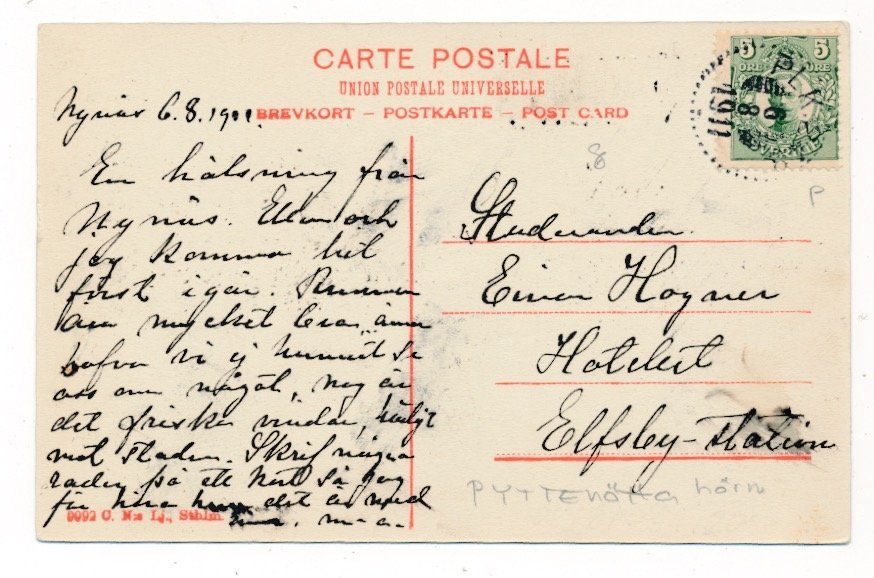 CARTE POSTALE
UNION POSTALE UNIVERSELLE
BREVKORT – POSTKARTE – POST CARD
5 5
ÖRE ÖRE
6 8
1911
Nynäs 6.8.1911
En hälsning från
Nynäs. Ellen och
jag kommo hit
först igår. Rummen
äro mycket bra, ännu
hafva vi ej hunnit se
oss om något, nog är
det friska vindar, härligt
mot staden. Skrif några
rader på ett kort så jag
får höra det är med
9092 C. N:s Lj., Sthlm.
m-a.
8
P
Studeranden
Einar Hogner
Hotellet
Elfsby-station
PYTTENÖTTA hörn